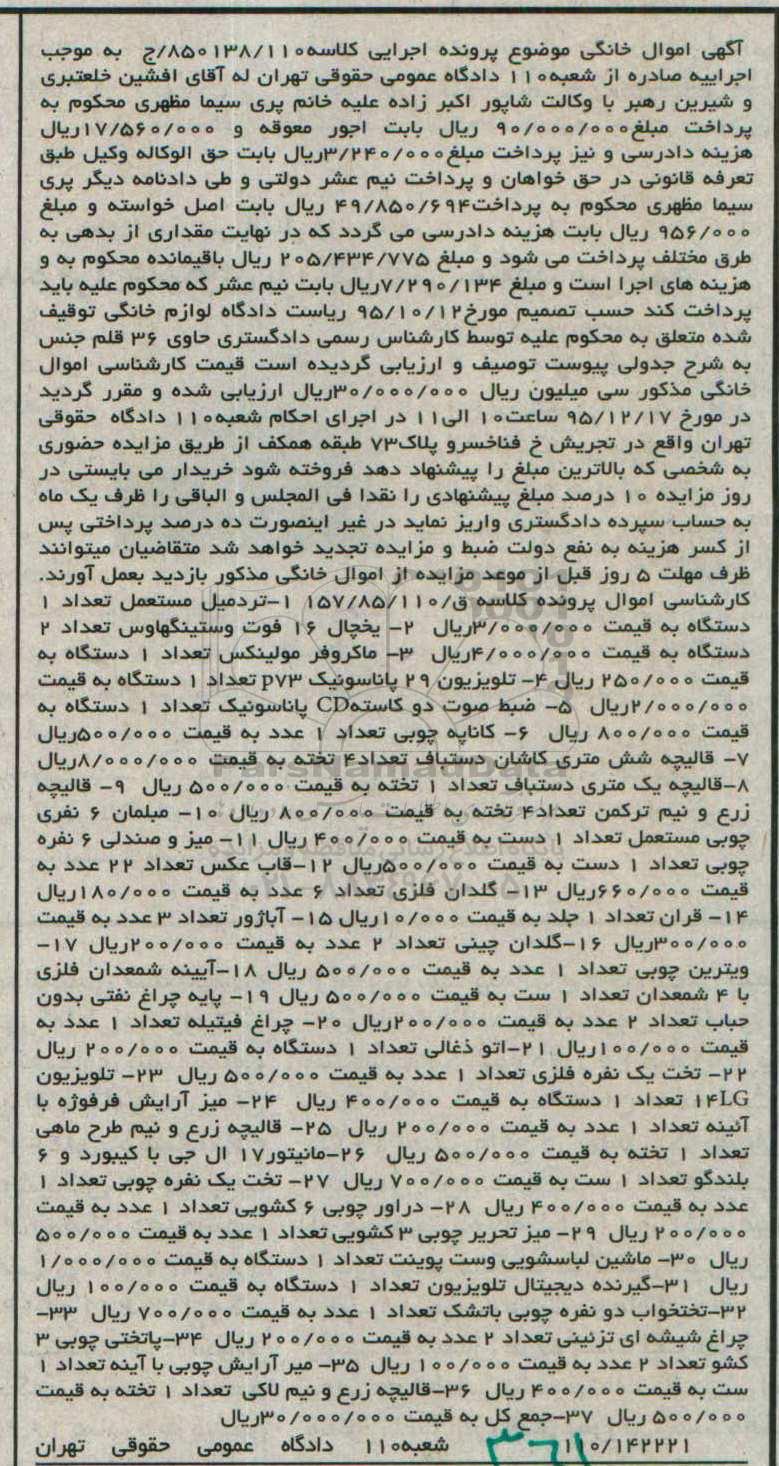 آگهی اموال خانگی موضوع پرونده اجرایی کلاسه۸۵۰۱۳۸/۱۱۰/ج به موجب
اجراییه صادره از شعبه۱۱۰ دادگاه عمومی حقوقی تهران له آقای افشین خلعتبری
و شیرین رهبر با وکالت شاپور اکبر زاده علیه خانم پری سیما مظهری محکوم به
پرداخت مبلغ۹۰/۰۰۰/۰۰۰ ریال بابت اجور معوقه و ۱۷/۵۶۰/۰۰۰ریال
هزینه دادرسی و نیز پرداخت مبلغ۳/۲۴۰/۰۰۰ریال بابت حق الوکاله وکیل طبق
تعرفه قانونی در حق خواهان و پرداخت نیم عشر دولتی و طی دادنامه دیگر پری
سیما مظهری محکوم به پرداخت۴۹/۸۵۰/۶۹۴ ریال بابت اصل خواسته و مبلغ
۹۵۶/۰۰۰ ریال بابت هزینه دادرسی می گردد که در نهایت مقداری از بدهی به
طرق مختلف پرداخت می شود و مبلغ ۲۰۵/۴۳۴/۷۷۵ ریال باقیمانده محکوم به و
هزینه های اجرا است و مبلغ ۷/۲۹۰/۱۳۴ریال بابت نیم عشر که محکوم علیه باید
پرداخت کند حسب تصمیم مورخ۹۵/۱۰/۱۲ ریاست دادگاه لوازم خانگی توقیف
شده متعلق به محکوم علیه توسط کارشناس رسمی دادگستری حاوی ۳۶ قلم جنس
به شرح جدولی پیوست توصیف و ارزیابی گردیده است قیمت کارشناسی اموال
خانگی مذکور سی میلیون ریال ۳۰/۰۰۰/۰۰۰ریال ارزیابی شده و مقرر گردید
در مورخ ۹۵/۱۲/۱۷ ساعت۱۰ الی۱۱ در اجرای احکام شعبه۱۱۰ دادگاه حقوقی
تهران واقع در تجریش خ فناخسرو پلاک۷۳ طبقه همکف از طریق مزایده حضوری
به شخصی که بالاترین مبلغ را پیشنهاد دهد فروخته شود خریدار می بایستی در
روز مزایده ۱۰ درصد مبلغ پیشنهادی را نقدا فی المجلس و الباقی را ظرف یک ماه
به حساب سپرده دادگستری واریز نماید در غیر اینصورت ده درصد پرداختی پس
از کسر هزینه به نفع دولت ضبط و مزایده تجدید خواهد شد متقاضیان میتوانند
ظرف مهلت ۵ روز قبل از موعد مزایده از اموال خانگی مذکور بازدید بعمل آورند.
کارشناسی اموال پرونده کلاسه ق/۱۵۷/۸۵/۱۱۰ ۱-تردمیل مستعمل تعداد ۱
دستگاه به قیمت ۳/۰۰۰/۰۰۰ریال ۲- یخچال ۱۶ فوت وستینگهاوس تعداد ۲
دستگاه به قیمت ۴/۰۰۰/۰۰۰ریال ۳- ماکروفر مولینکس تعداد ۱ دستگاه به
قیمت ۲۵۰/۰۰۰ ریال ۴- تلویزیون ۲۹ پاناسونیک p۷۳ تعداد ۱ دستگاه به قیمت
۲/۰۰۰/۰۰۰ریال ۵- ضبط صوت دو کاستهCD پاناسونیک تعداد ۱ دستگاه به
قیمت ۸۰۰/۰۰۰ ریال ۶- کاناپه چوبی تعداد ۱ عدد به قیمت ۵۰۰/۰۰۰ریال
۷- قالیچه شش متری کاشان دستباف تعداد۴ تخته به قیمت ۸/۰۰۰/۰۰۰ریال
۸-قالیچه یک متری دستباف تعداد ۱ تخته به قیمت ۵۰۰/۰۰۰ ریال ۹- قالیچه
زرع و نیم ترکمن تعداد۴ تخته به قیمت ۸۰۰/۰۰۰ ریال ۱۰- مبلمان ۶ نفری
چوبی مستعمل تعداد ۱ دست به قیمت ۴۰۰/۰۰۰ ریال ۱۱- میز و صندلی ۶ نفره
چوبی تعداد ۱ دست به قیمت ۵۰۰/۰۰۰ریال ۱۲-قاب عکس تعداد ۲۲ عدد به
قیمت ۶۶۰/۰۰۰ریال ۱۳- گلدان فلزی تعداد ۶ عدد به قیمت ۱۸۰/۰۰۰ریال
۱۴- قران تعداد ۱ جلد به قیمت ۱۰/۰۰۰ریال ۱۵- آباژور تعداد ۳ عدد به قیمت
۳۰۰/۰۰۰ریال ۱۶-گلدان چینی تعداد ۲ عدد به قیمت ۲۰۰/۰۰۰ریال ۱۷-
ویترین چوبی تعداد ۱ عدد به قیمت ۵۰۰/۰۰۰ ریال ۱۸-آیینه شمعدان فلزی
با ۴ شمعدان تعداد ۱ ست به قیمت ۵۰۰/۰۰۰ ریال ۱۹- پایه چراغ نفتی بدون
حباب تعداد ۲ عدد به قیمت ۲۰۰/۰۰۰ریال ۲۰- چراغ فیتیله تعداد ۱ عدد به
قیمت ۱۰۰/۰۰۰ریال ۲۱-اتو ذغالی تعداد ۱ دستگاه به قیمت ۲۰۰/۰۰۰ ریال
۲۲- تخت یک نفره فلزی تعداد ۱ عدد به قیمت ۵۰۰/۰۰۰ ریال ۲۳- تلویزیون
۱۴LG تعداد ۱ دستگاه به قیمت ۴۰۰/۰۰۰ ریال ۲۴- میز آرایش فرفوژه با
آئینه تعداد ۱ عدد به قیمت ۲۰۰/۰۰۰ ریال ۲۵- قالیچه زرع و نیم طرح ماهی
تعداد ۱ تخته به قیمت ۵۰۰/۰۰۰ ریال ۲۶-مانیتور۱۷ ال جی با کیبورد و ۶
بلندگو تعداد ۱ ست به قیمت ۷۰۰/۰۰۰ ریال ۲۷- تخت یک نفره چوبی تعداد ۱
عدد به قیمت ۴۰۰/۰۰۰ ریال ۲۸- دراور چوبی ۶ کشویی تعداد ۱ عدد به قیمت
۲۰۰/۰۰۰ ریال ۲۹- میز تحریر چوبی ۳ کشویی تعداد ۱ عدد به قیمت ۵۰۰/۰۰۰
ریال ۳۰- ماشین لباسشویی وست پوینت تعداد ۱ دستگاه به قیمت ۱/۰۰۰/۰۰۰
ریال ۳۱-گیرنده دیجیتال تلویزیون تعداد ۱ دستگاه به قیمت ۱۰۰/۰۰۰ ریال
۳۲-تختخواب دو نفره چوبی باتشک تعداد ۱ عدد به قیمت ۷۰۰/۰۰۰ ریال ۳۳-
چراغ شیشه ای تزئینی تعداد ۲ عدد به قیمت ۲۰۰/۰۰۰ ریال ۳۴-پاتختی چوبی ۳
کشو تعداد ۲ عدد به قیمت ۱۰۰/۰۰۰ ریال ۳۵- میر آرایش چوبی با آینه تعداد ۱
ست به قیمت ۴۰۰/۰۰۰ ریال ۳۶-قالیچه زرع و نیم لاکی تعداد ۱ تخته به قیمت
۵۰۰/۰۰۰ ریال ۳۷-جمع کل به قیمت ۳۰/۰۰۰/۰۰۰ریال
۱۱۰/۱۴۲۲۲۱ شعبه۱۱۰ دادگاه عمومی حقوقی تهران